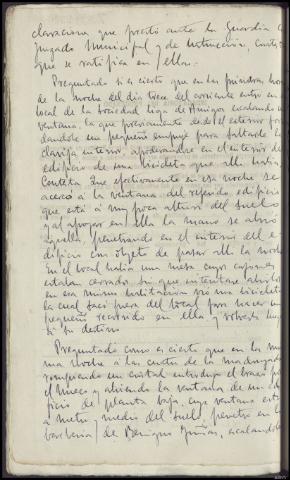 claraciones que prestó ante la Guardia C
Juzgado Municipal y de Instrucción, contesta
que se ratifica en ellas.
Preguntado si es cierto que en las primeras horas
de la noche del día trece del corriente entró en
local de la Sociedad Liga de Amigos escalando u
ventana, la que previamente desde el exterior for
dandole un pequeño empuje para saltarle la
clavija interior, apoderandose en el interior de
edificio de una bicicleta que allí había
Contesta Que efectivamente en esa noche se
acercó a la ventana del referido edificio
que está a muy poca altura del suelo
y al apoyar en ella la mano se abrió
aquella penetrando en el interior del e
dificio con objeto de pasar allí la noche
En el local había una mesa cuyos cajones
estaban cerrados sin que intentase abrirlos
en esa misma habitación vió una bicicleta
la cual sacó fuera del local para hacer un
pequeño recorrido en ella y volverla lue
a su destino
Preguntado como es cierto que en la mis
ma noche a las cuatro de la madrugada
rompiendo un cristal introdujo el brazo por
el hueco y abriendo la ventana de un edi
ficio de planta baja, cuya ventana está
a metro y medio del suelo, penetró en la
barbería de Benigno Juñas, escalando